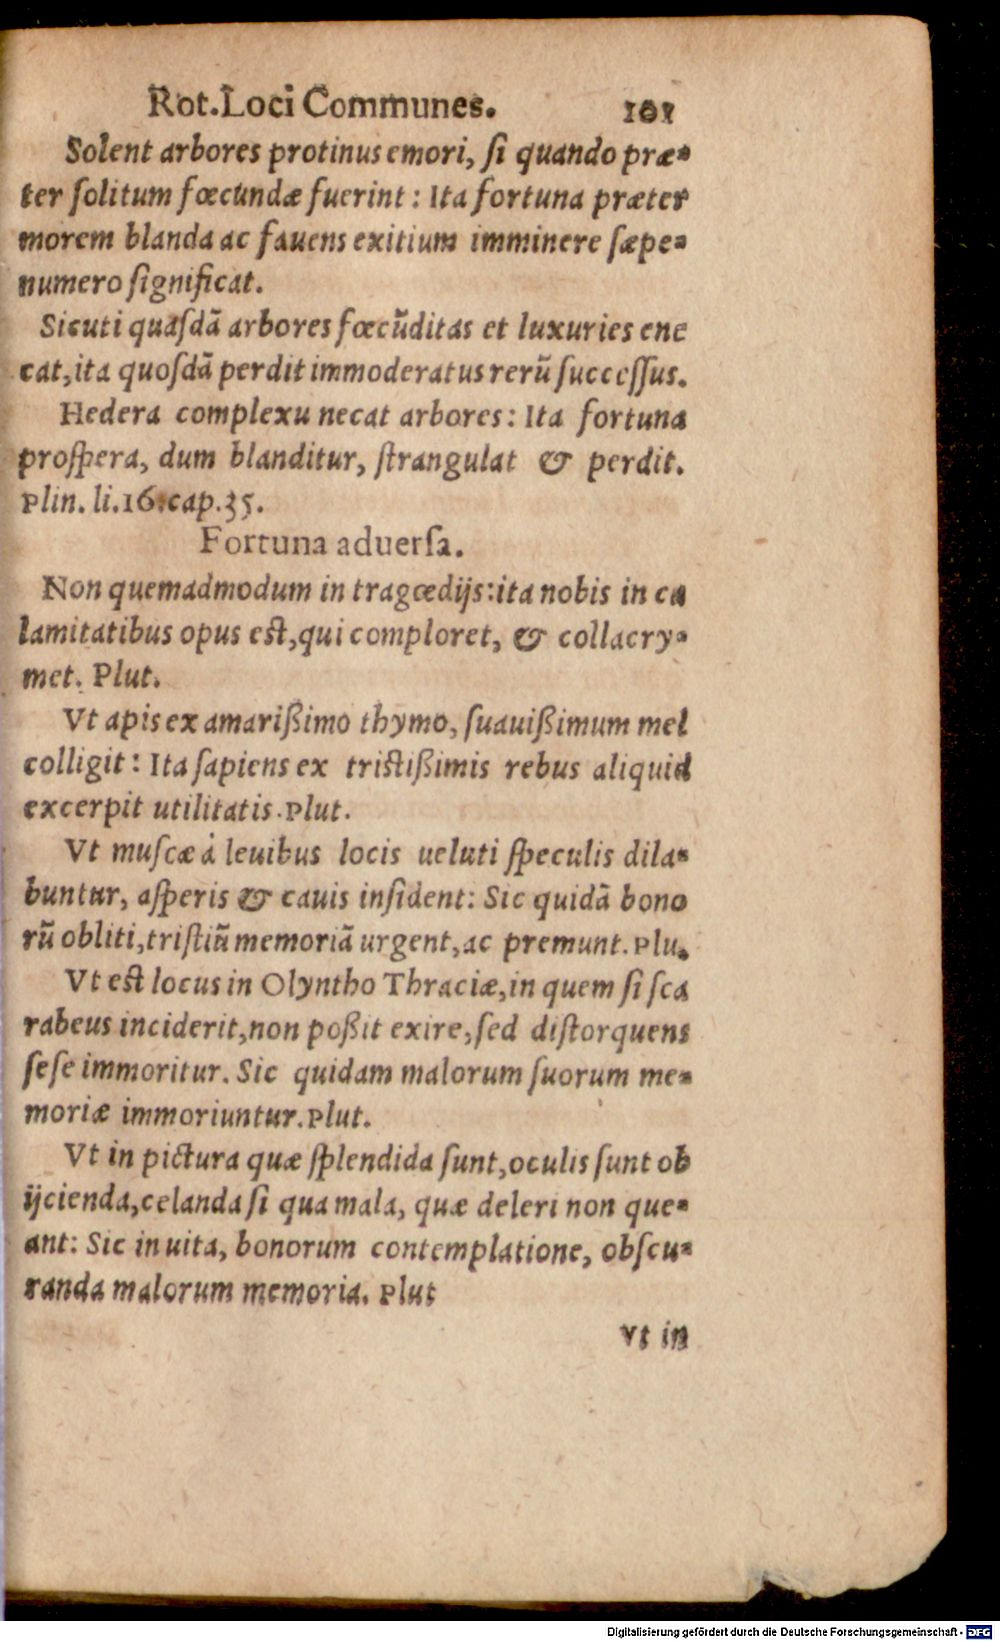 Rot.Loci Communes. 101
Solent arbores protinus emori, ſi quando præ=
ter ſolitum fœcundæ fuerint : Ita fortuna præter
morem blanda ac fauens exitium imminere ſæpe=
numero ſignificat.
Sicuti quaſdã arbores fœcũditas et luxuries ene
cat,ita quoſdã perdit immoderatus rerũ ſucceſſus.
Hedera complexu necat arbores: Ita fortuna
proſpera, dum blanditur, ſtrangulat & perdit.
Plin. li.16.cap.35.
Fortuna aduerſa.
Non quemadmodum in tragœdijs:ita nobis in ca
lamitatibus opus est,qui comploret, & collacry=
met. Plut.
Vt apis ex amarißimo thymo, ſuauißimum mel
colligit : Ita ſapiens ex tristißimis rebus aliquid
excerpit utilitatis.Plut.
Vt muſcæ à leuibus locis ueluti ſpeculis dila=
buntur, aſperis & cauis inſident: Sic quidã bono
rũ obliti,triſtiũ memoriã urgent,ac premunt.Plu.
Vt est locus in Olyntho Thraciæ,in quem ſi ſca
rabeus inciderit,non poßit exire,ſed diſtorquens
ſeſe immoritur. Sic quidam malorum ſuorum me=
moriæ immoriuntur.Plut.
Vt in pictura quæ ſplendida ſunt,oculis ſunt ob
ijcienda,celanda ſi qua mala, quæ deleri non que=
ant: Sic in uita, bonorum contemplatione, obſcu=
randa malorum memoria. Plut
Vt in
Digitalisierung gefördert durch die Deutsche Forschungsgemeinschaft - DFG